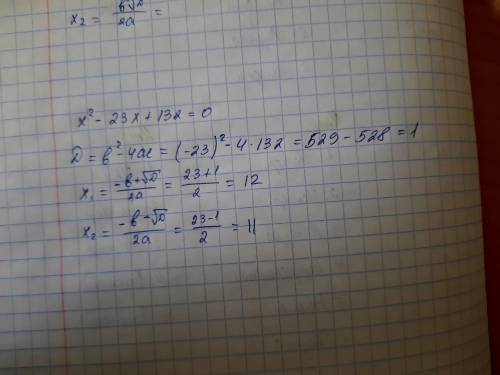 x₂ = в√D/2a =
x² - 23x + 132 = 0
D = в² - 4ac = (-23)² - 4·132 = 529 - 528 = 1
x₁ = -в+√D/2a = 23+1/2 = 12
x₂ = -в-√D/2a = 23-1/2 = 11